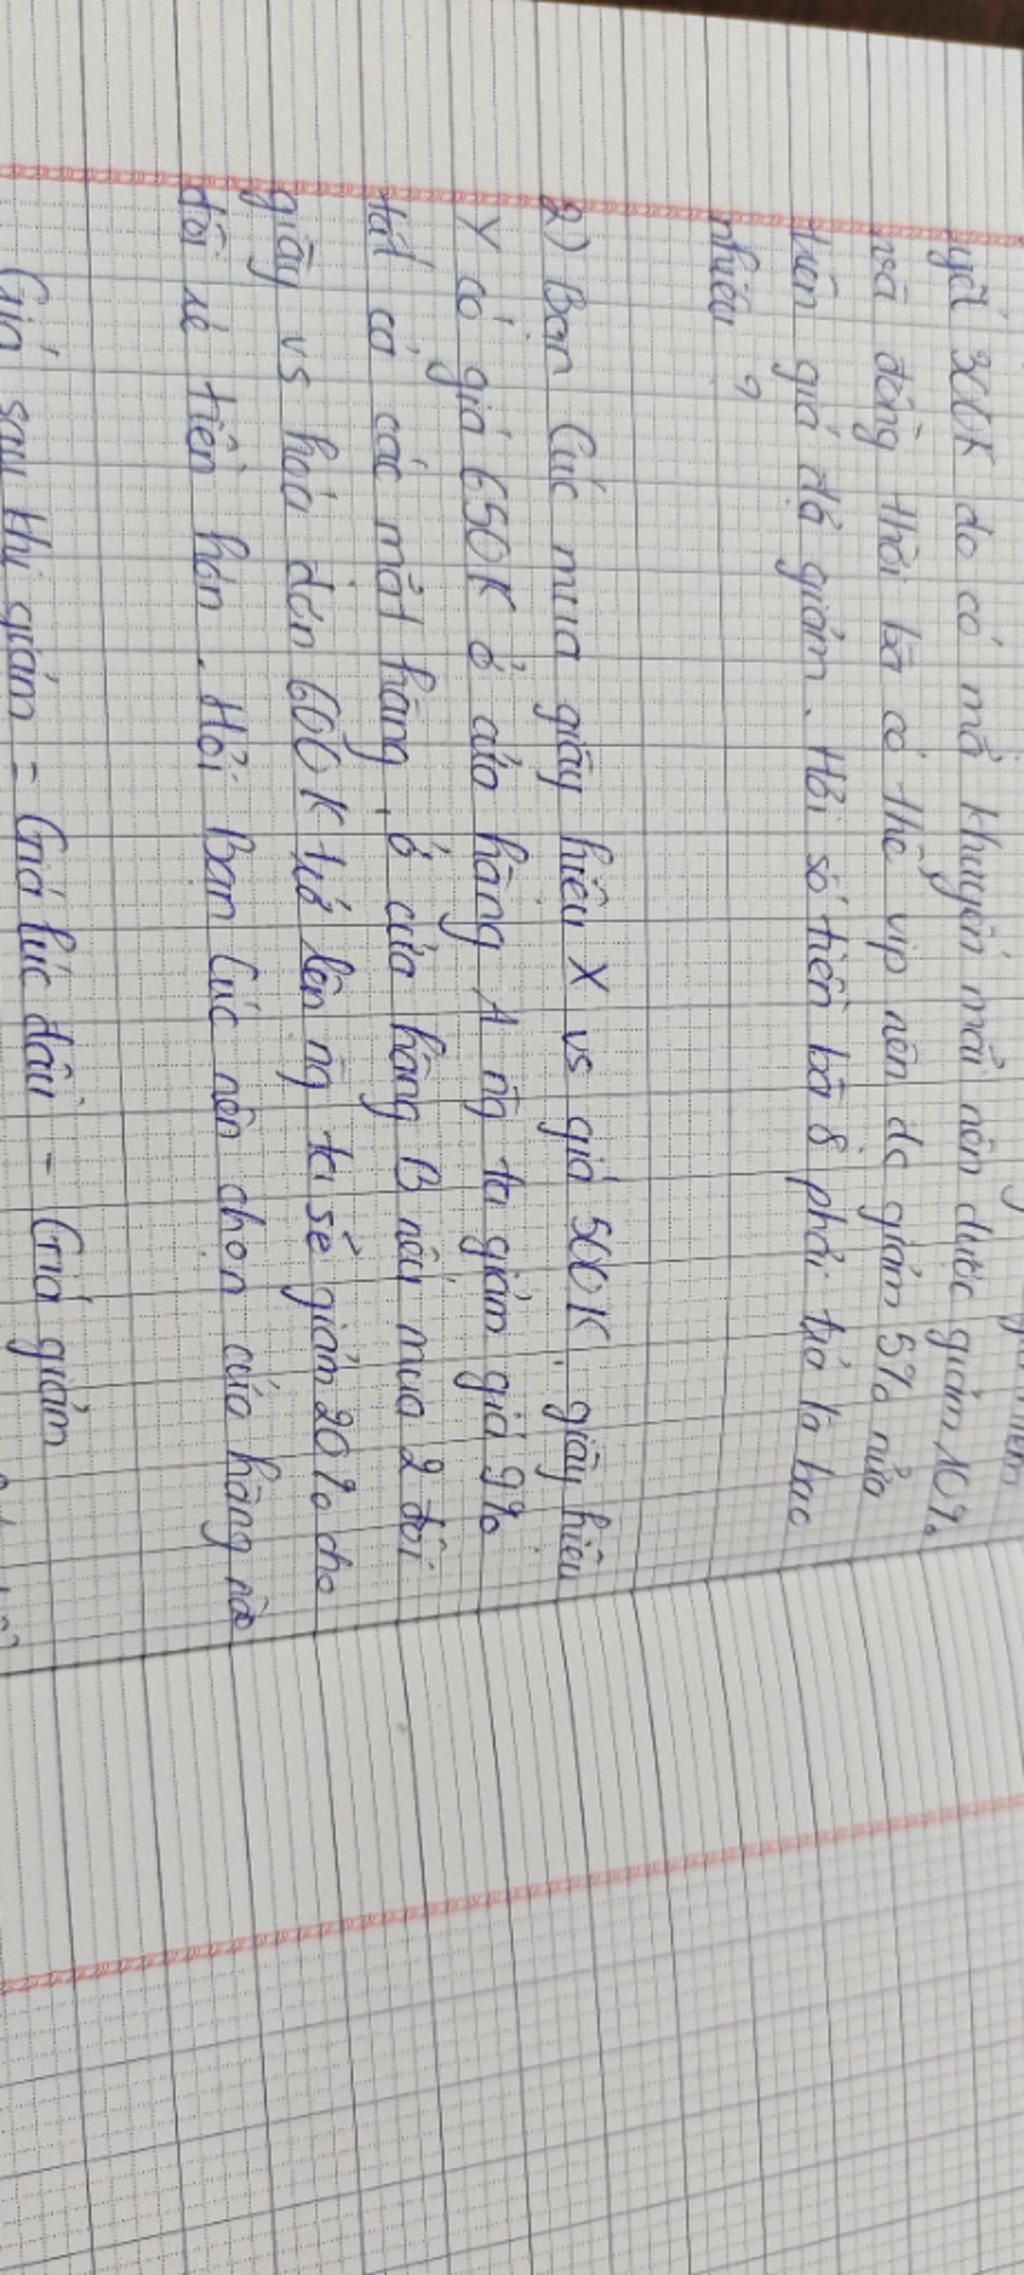 yết 300K do có mở khuyến mãi nên được giảm 10%
và đồng thời bà có thẻ vip nên dc giảm 5% nữa
trên giá đã giảm. Hỏi số tiền bà 8 phải trả là bao
nhiêu ?
2) Bạn Cúc mua giày hiệu X vs giá 500K. giày hiệu
Y có giá 650K ở cửa hàng A ng ta giảm giá 9%
tất cả các mặt hàng, ở cửa hàng B nếu mua 2 đôi
giày vs hóa đơn 600K trở lên ng ta sẽ giảm 20% cho
đôi rẻ tiền hơn. Hỏi Bạn Cúc nên chọn cửa hàng nào
Giá sau khi giảm = Giá lúc đầu - Giá giảm